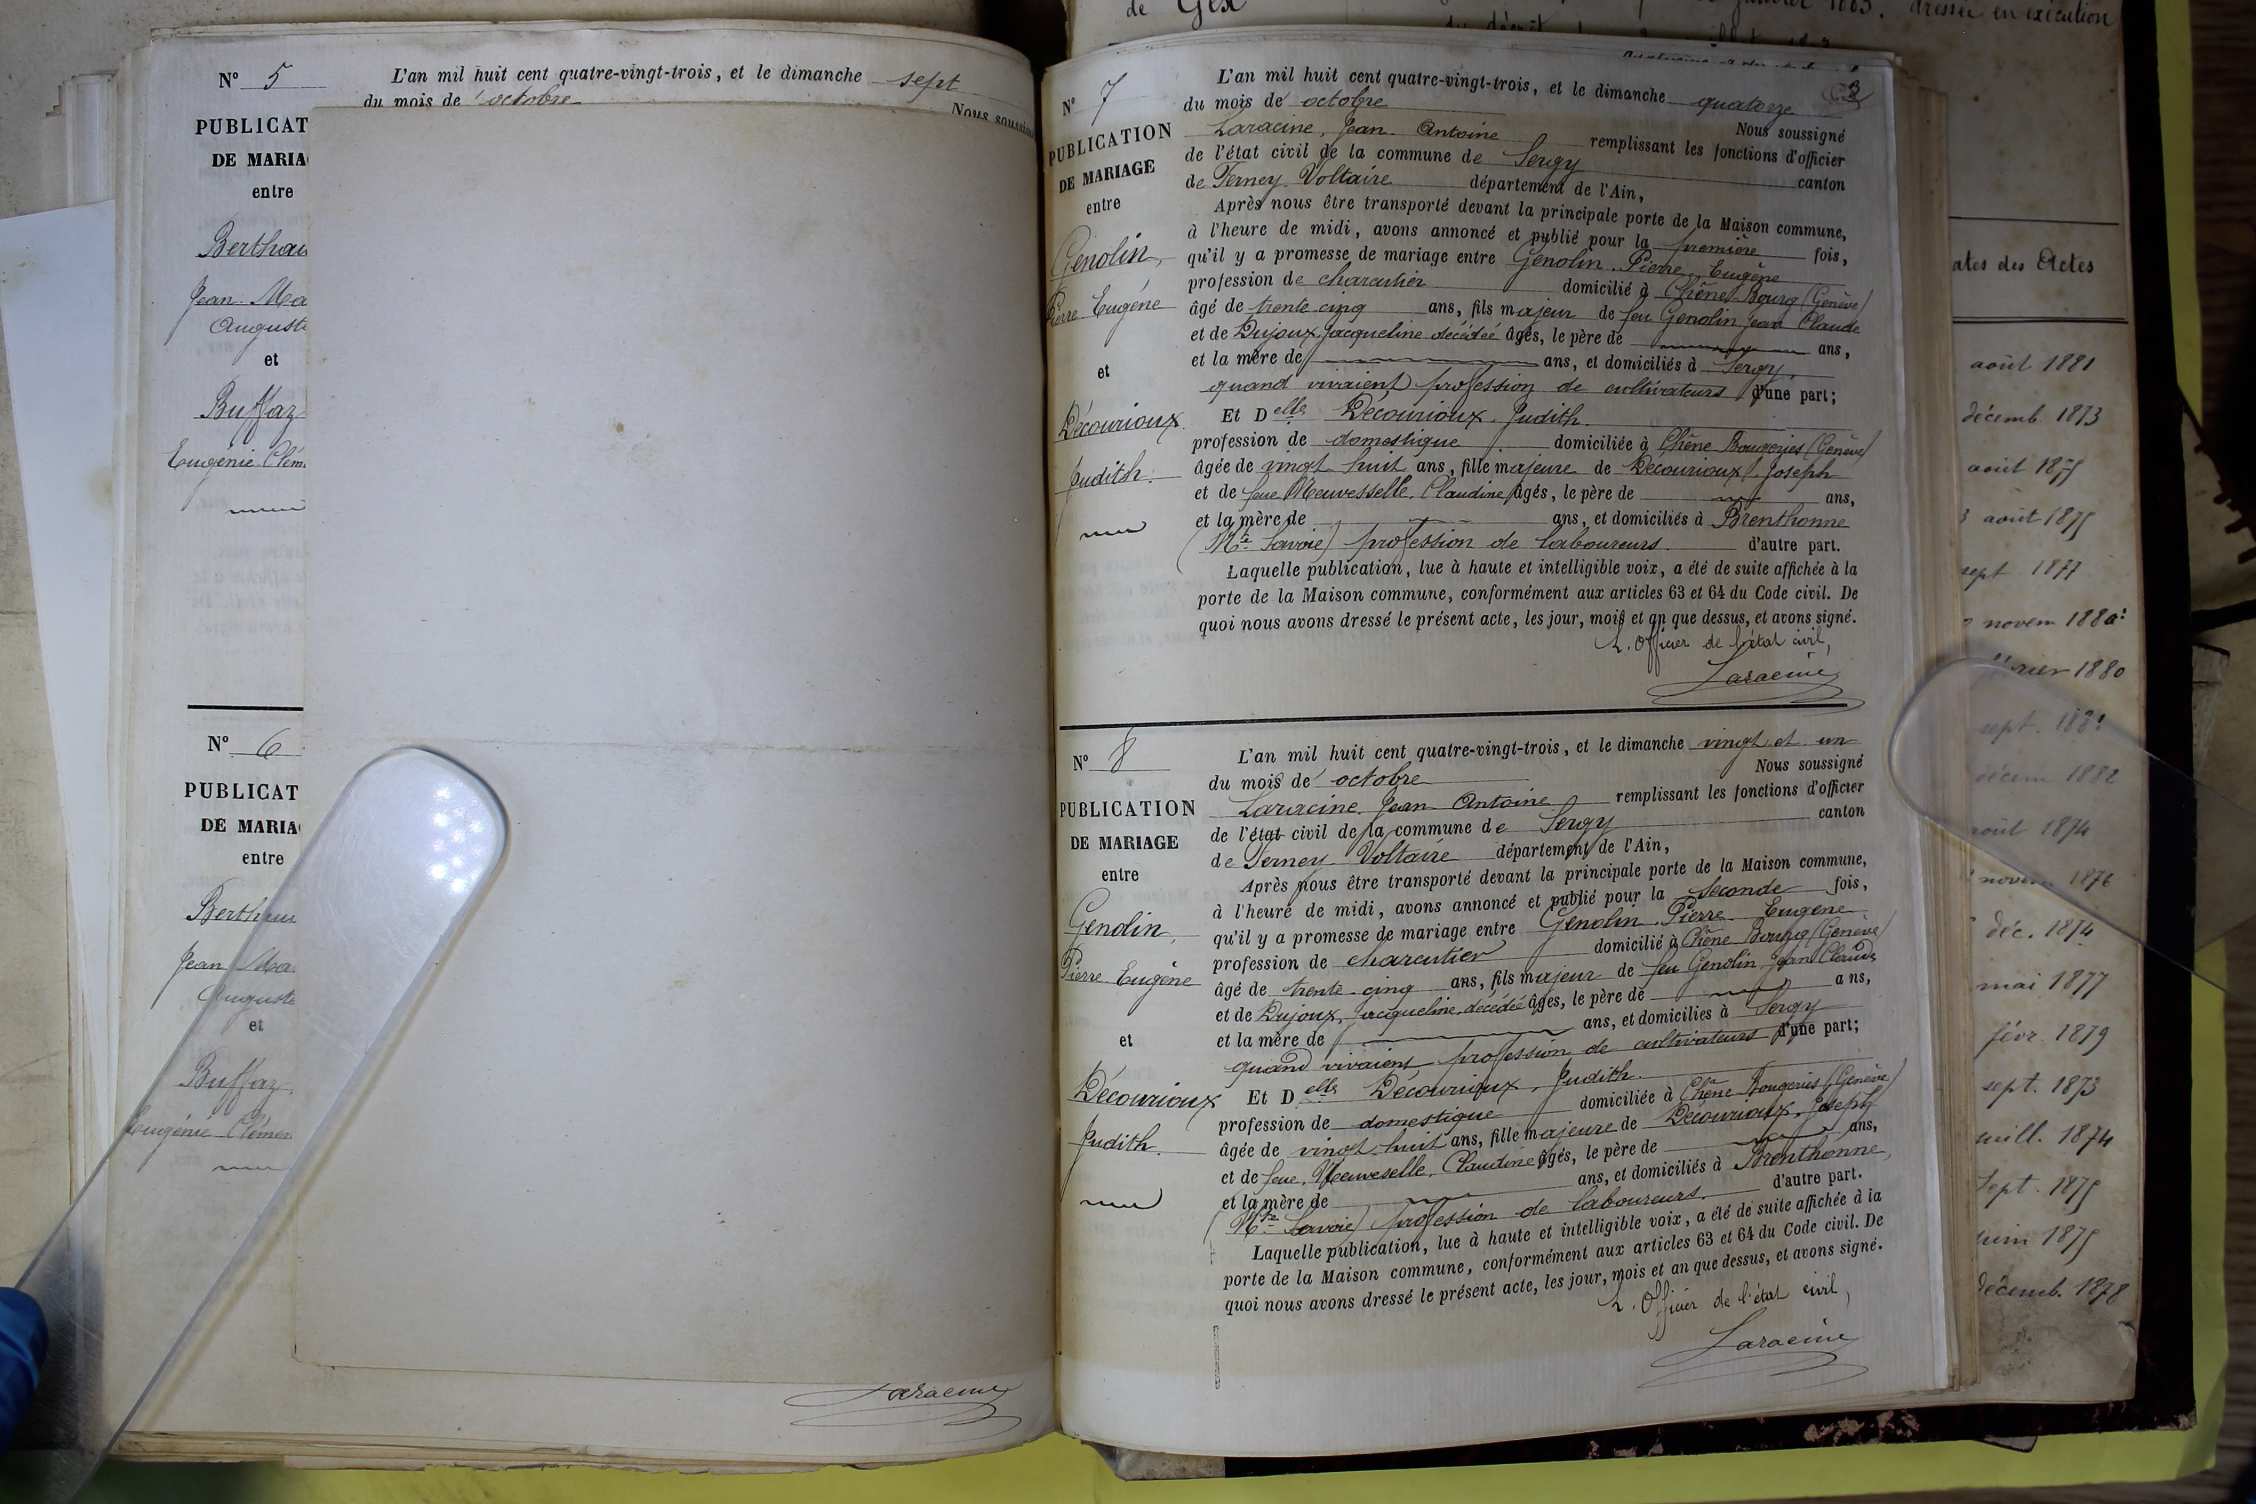 N° 5
L'an mil huit cent quatre-vingt-trois, et le dimanche sept
du mois de octobre
Nous soussi
PUBLICAT
DE MARIA
entre
Berthou
Jean Ma
August
et
Buffaz
Eugénie Clém
N° 6
PUBLICAT
DE MARIA
entre
Berth
Jean Ma
Auguste
et
Buffaz
Eugénie Clémen
Laracine
N° 7
PUBLICATION
DE MARIAGE
entre
Genolin,
Pierre Eugéne
et
Décourioux
Judith.
L'an mil huit cent quatre-vingt-trois, et le dimanche quatorze
du mois de octobre
Nous soussigné
Laracine, Jean Antoine remplissant les fonctions d'officier
de l'état civil de la commune de Sergy canton
de Ferney Voltaire département de l'Ain,
Après nous être transporté devant la principale porte de la Maison commune,
à l'heure de midi, avons annoncé et publié pour la première fois,
qu'il y a promesse de mariage entre Genolin, Pierre Eugène
profession de charcutier domicilié à Chêne Bourg (Genève)
âgé de trente cinq ans, fils majeur de feu Genolin Jean Claude
et de Dujoux, Jacqueline décédée âgés, le père de ans,
et la mère de ans, et domiciliés à Sergy,
quand vivaient profession de cultivateurs d'une part;
Et Delle Décourioux, Judith.
profession de domestique domiciliée à Chêne Bougeries (Genève)
âgée de vingt huit ans, fille majeure de Décourioux, Joseph
et de feue Meuvesselle, Claudine âgés, le père de ans,
et la mère de ans, et domiciliés à Brenthonne
(Hte Savoie) profession de laboureurs. d'autre part.
Laquelle publication, lue à haute et intelligible voix, a été de suite affichée à la
porte de la Maison commune, conformément aux articles 63 et 64 du Code civil. De
quoi nous avons dressé le présent acte, les jour, mois et an que dessus, et avons signé.
L. Officier de l'état civil,
Laracine
N° 8
PUBLICATION
DE MARIAGE
entre
Genolin,
Pierre Eugéne
et
Décourioux
Judith.
L'an mil huit cent quatre-vingt-trois, et le dimanche vingt et un
du mois de octobre
Nous soussigné
Laracine Jean Antoine remplissant les fonctions d'officier
de l'état civil de la commune de Sergy canton
de Ferney Voltaire département de l'Ain,
Après nous être transporté devant la principale porte de la Maison commune,
à l'heure de midi, avons annoncé et publié pour la seconde fois,
qu'il y a promesse de mariage entre Genolin, Pierre Eugène
profession de charcutier domicilié à Chêne Bourg (Genève)
âgé de trente cinq ans, fils majeur de feu Genolin Jean Claude
et de Dujoux, Jacqueline, décédée âgés, le père de ans,
et la mère de ans, et domiciliés à Sergy
quand vivaient profession de cultivateurs d'une part;
Et Delle Décourioux, Judith.
profession de domestique domiciliée à Chêne Bougeries (Genève)
âgée de vingt huit ans, fille majeure de Décourioux, Joseph
et de feue, Meuveselle, Claudine âgés, le père de ans,
et la mère de ans, et domiciliés à Brenthonne,
(Hte Savoie) profession de laboureurs. d'autre part.
Laquelle publication, lue à haute et intelligible voix, a été de suite affichée à la
porte de la Maison commune, conformément aux articles 63 et 64 du Code civil. De
quoi nous avons dressé le présent acte, les jour, mois et an que dessus, et avons signé.
L. Officier de l'état civil,
Laracine
de Gex
dressée en exécution
ates des Actes
août 1881
décemb. 1873
août 1875
août 1875
sept 1877
novem 1880
rier 1880
sept. 1881
décem 1882
août 1874
novem 1876
déc. 1874
mai 1877
févr 1879
sept. 1873
uill. 1874
Sept. 1875
uin 1875
décemb. 1878